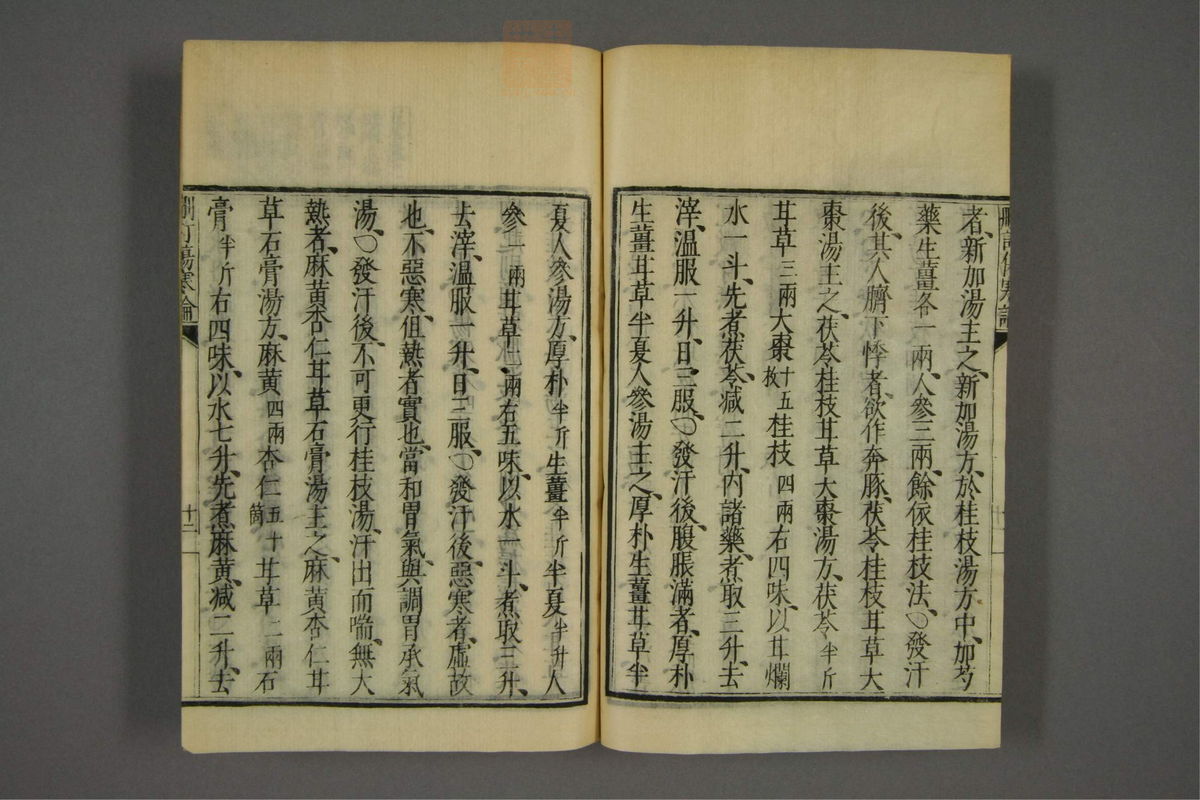 者、新加湯主之、新加湯方、於桂枝湯方中、加芍
藥生薑各一兩、人參三兩、餘依桂枝法、○發汗
後、其人臍下悸者、欲作奔豚、茯苓桂枝甘草大
棗湯主之、茯苓桂枝甘草大棗湯方、茯苓半斤
甘草三兩大棗十五枚桂枝四兩右四味、以甘爛
水一斗、先煮茯苓、減二升、內諸藥、煮取三升、去
滓、溫服一升、日三服、○發汗後、腹脹滿者、厚朴
生薑甘草半夏人參湯主之、厚朴生薑甘草半
夏人參湯方、厚朴半斤生薑半斤半夏半升人
參一兩甘草二兩右五味、以水一斗、煮取三升、
去滓、溫服一升、日三服、○發汗後、惡寒者、虛故
也、不惡寒、但熱者實也、當和胃氣、與調胃承氣
湯、○發汗後、不可更行桂枝湯、汗出而喘、無大
熱者、麻黃杏仁甘草石膏湯主之、麻黃杏仁甘
草石膏湯方、麻黃四兩杏仁五十箇甘草二兩石
膏半斤右四味、以水七升、先煮麻黃、減二升、去
刪訂傷寒論
十二